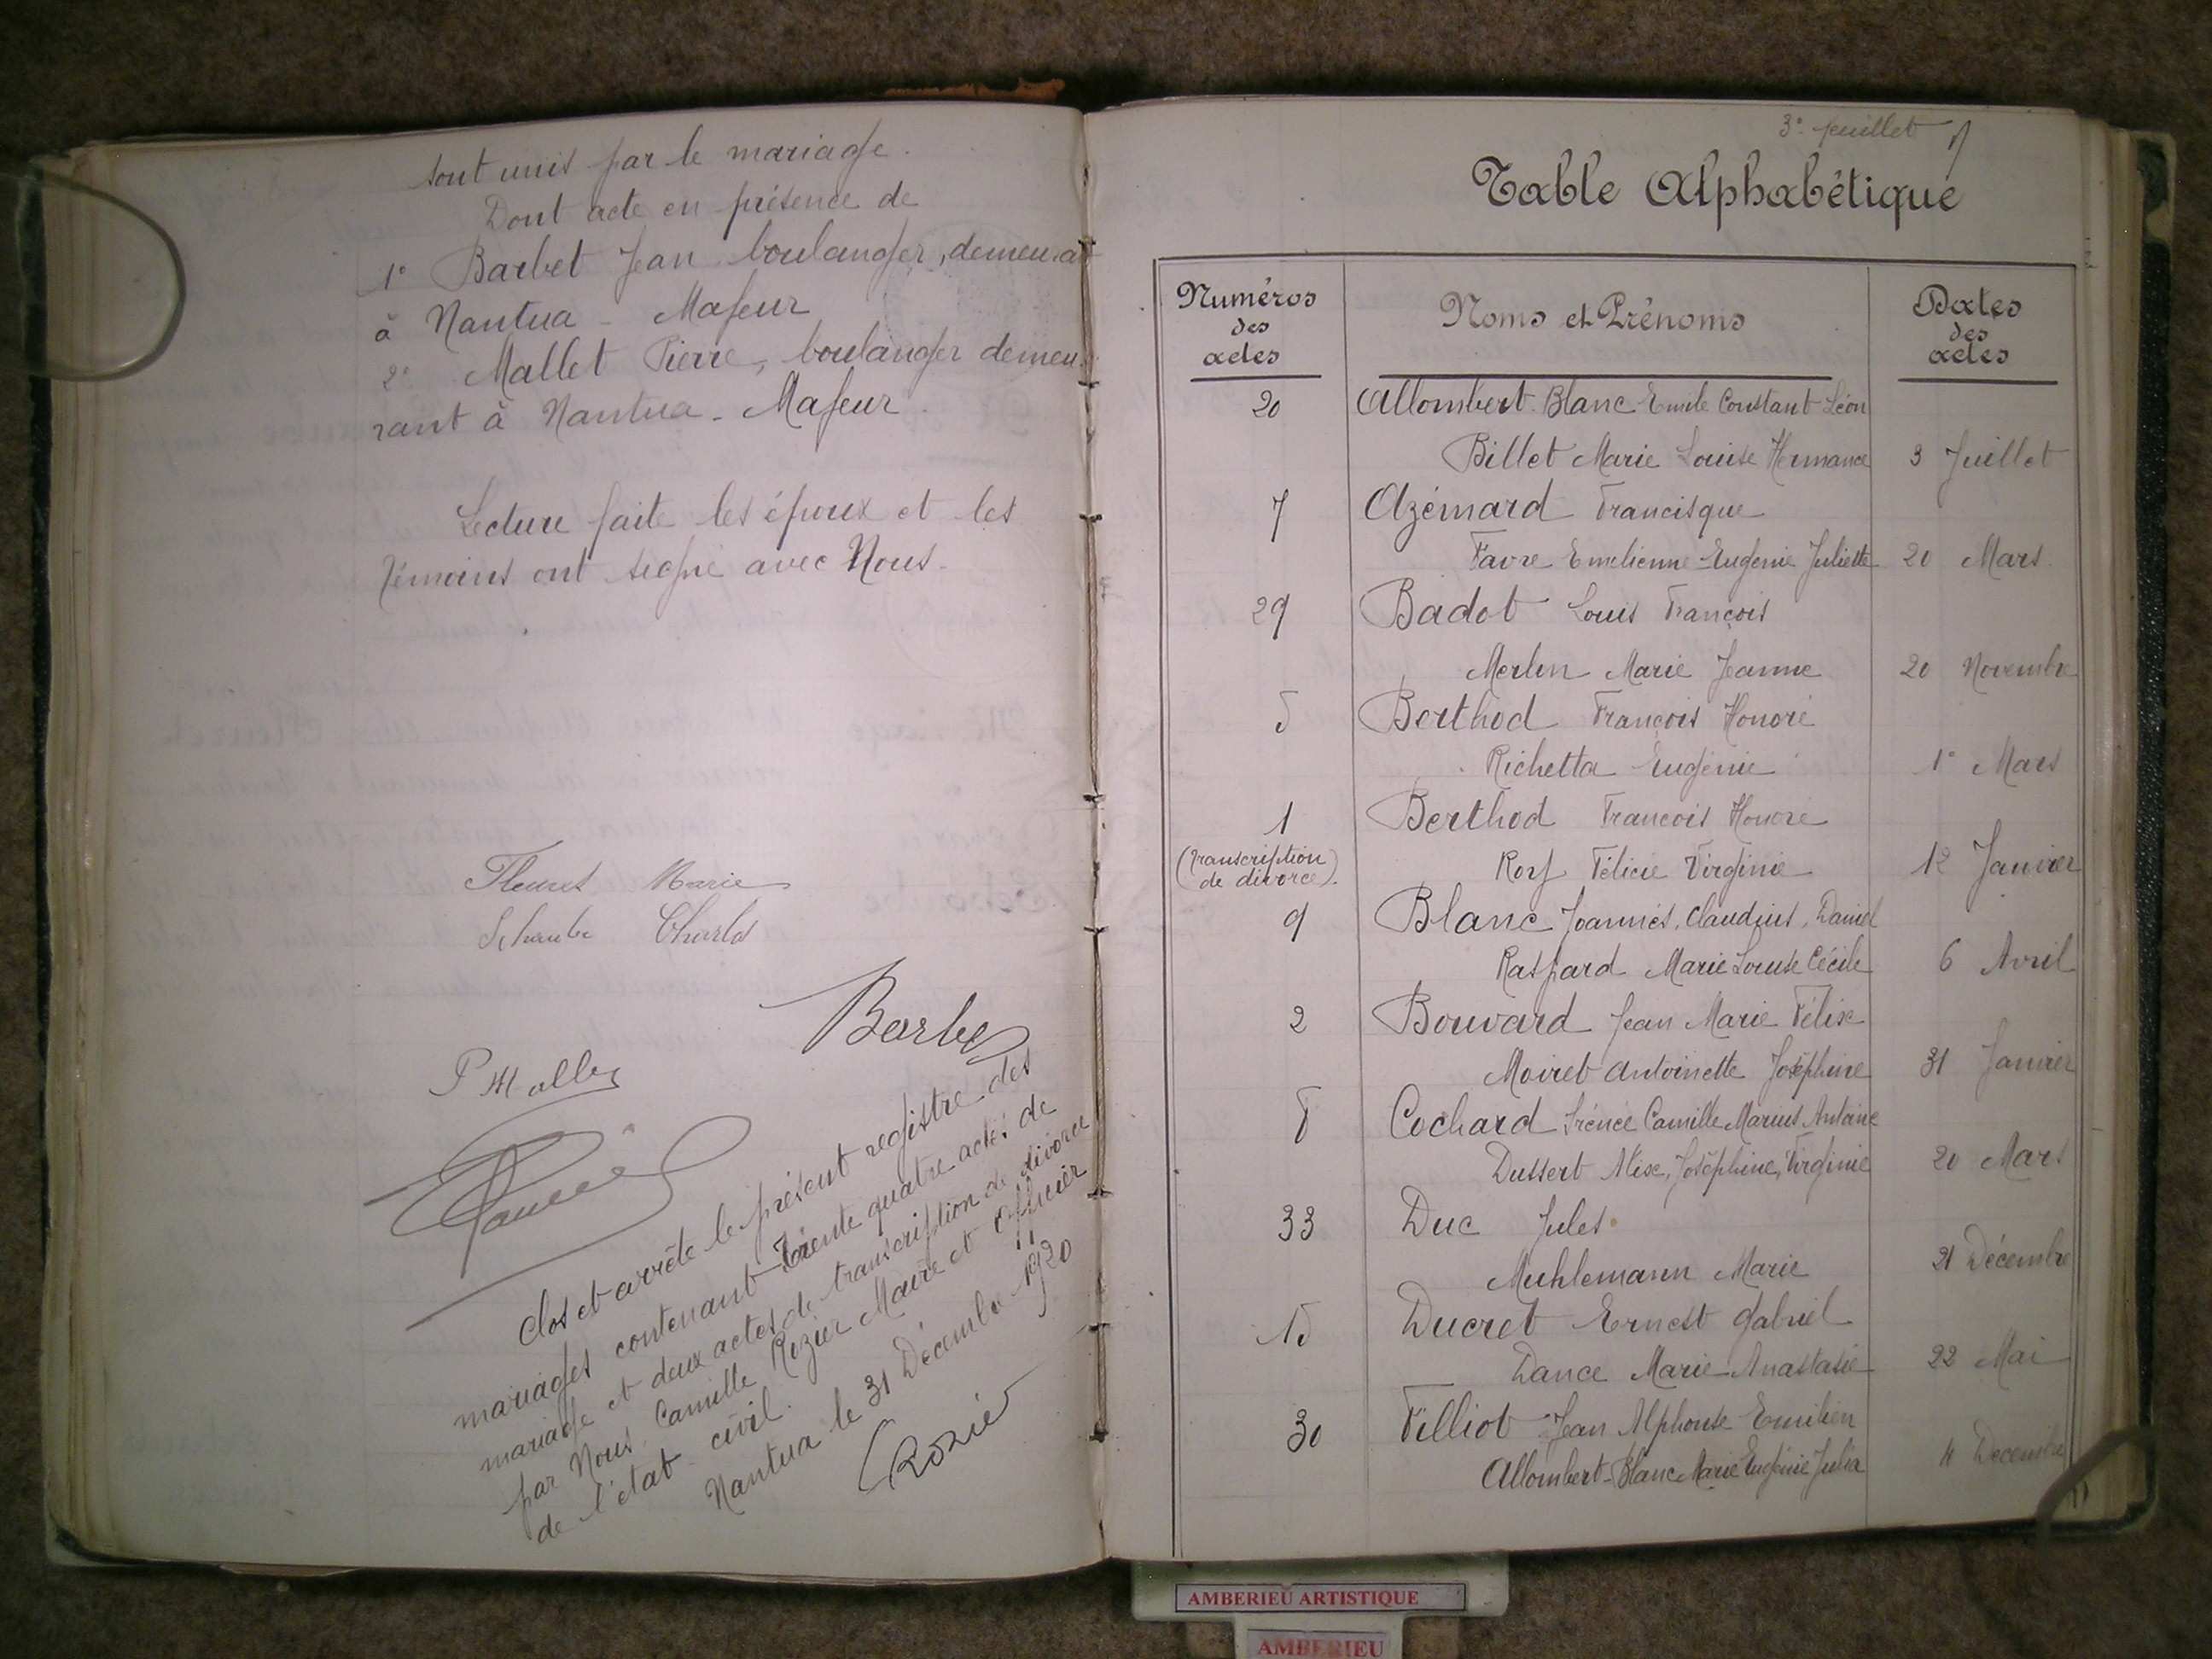 sont unis par le mariage.
Dont acte en présence de
1° Barbet Jean boulanger, demeurant
à Nantua - Majeur
2° Mallet Pierre, boulanger demeu-
rant à Nantua - Majeur.
Lecture faite les époux et les
témoins ont signé avec Nous.
Marie
Charles
Barbet
P Mallet
Clos et arrêté le présent registre des
mariages contenant trente quatre actes de
mariage et deux actes de transcription de divorce
par Nous, Camille Rozier Maire et Officier
de l'état civil.
Nantua le 31 Décembre 1920
CRozier
3° feuillet
Table Alphabétique
Numéros des actes
Noms et Prénoms
Dates des actes
20 Allombert-Blanc Emile Constant Léon
Billet Marie Louise Hermance 3 Juillet
7 Azémard Francisque
Favre Emelienne-Eugénie Juliette 20 Mars
29 Badot Louis François
Merlin Marie Jeanne 20 Novembre
5 Berthod François Honoré
Richetta Eugénie 1° Mars
1 Berthod Francois Honoré
(transcription de divorce) Félicie Virginie 12 Janvier
9 Blanc Joannès, Claudius, Daniel
Raspard Marie Louise Cécile 6 Avril
2 Bouvard Jean Marie Félix
Moiret Antoinette Joséphine 31 Janvier
8 Cochard Irénée Camille Marius Antoine
Dussert Alix, Joséphine, Virginie 20 Mars
33 Duc Jules
Muhlemann Marie 21 Décembre
15 Ducret Ernest Gabriel
Dance Marie-Anastasie 22 Mai
30 Filliot Jean Alphonse Emilien
Allombert-Blanc Marie Eugénie Julia 4 Decembre
AMBERIEU ARTISTIQUE
AMBERIEU